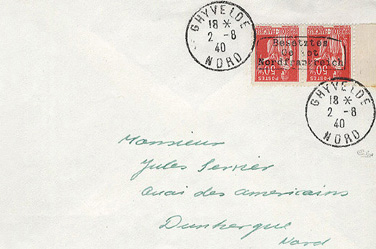 GHYVELDE
18 *
2 - 8
40
NORD
Besetztes
Gebiet
Nordfrankreich
50c
POSTES
50c
POSTES
GHYVELDE
18 *
2 - 8
40
NORD
Monsieur
Jules Serrier
Quai des americains
Dunkerque
Nord